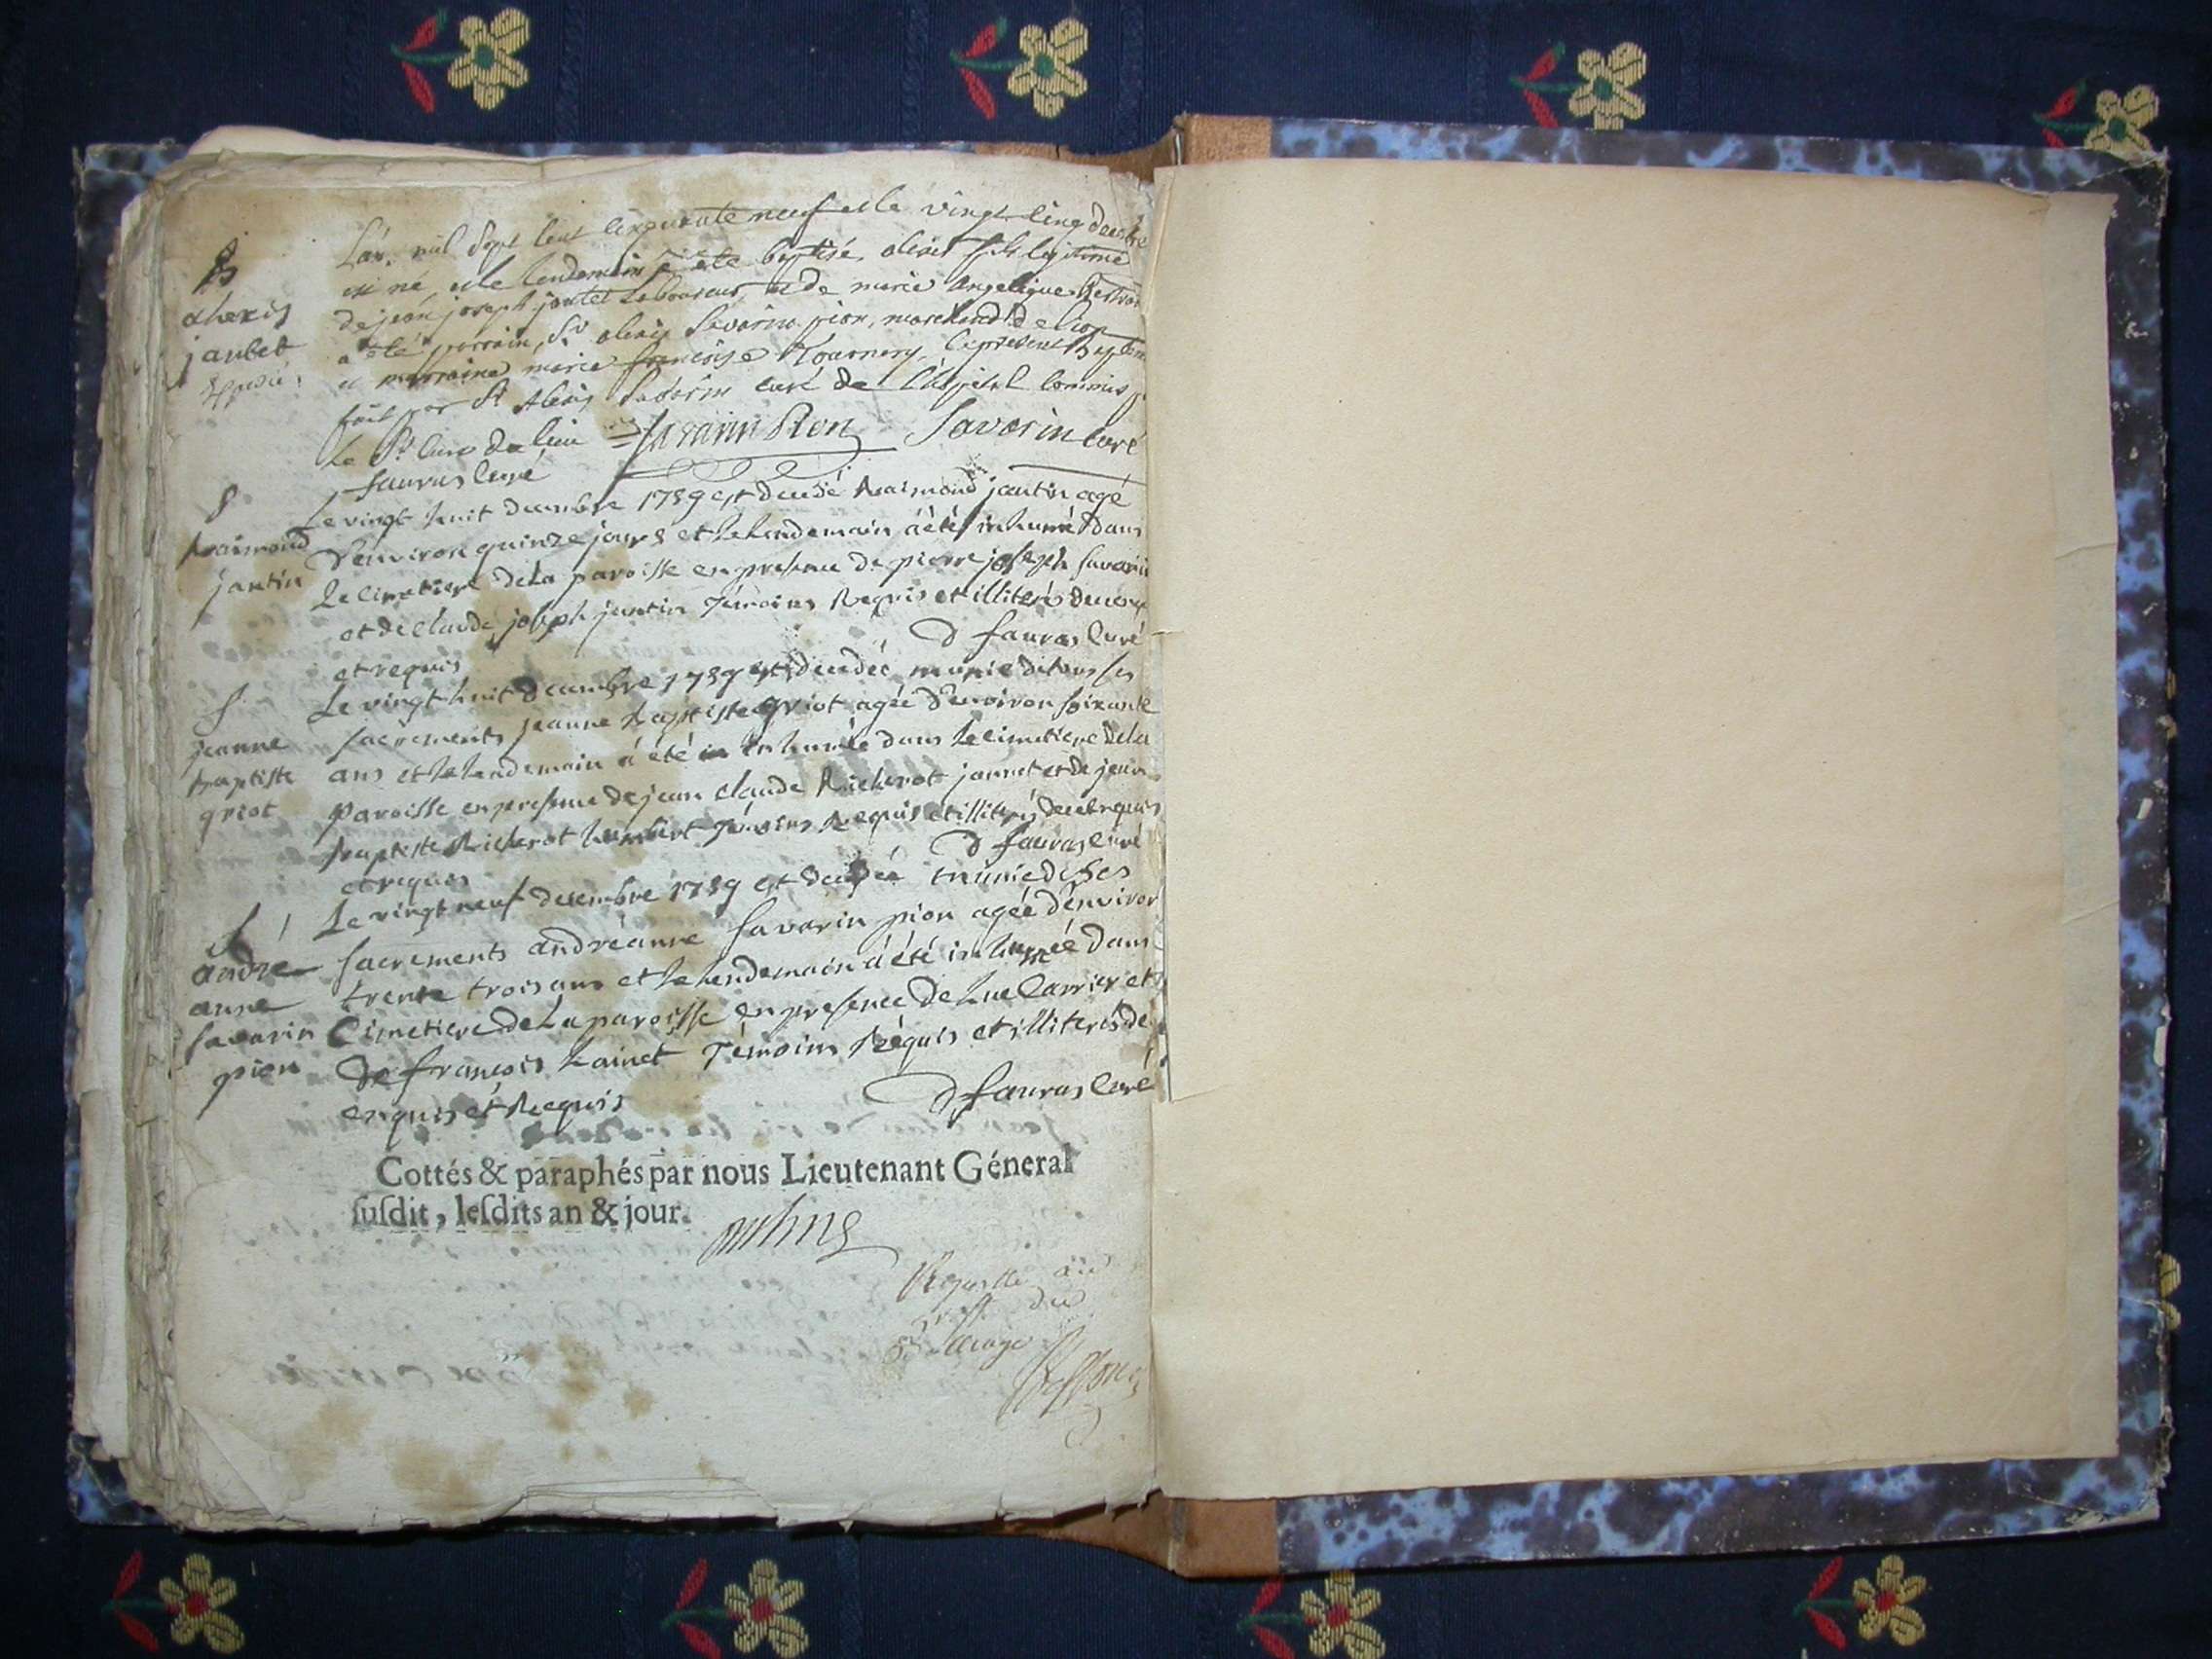 B
alexis
jaubet
L'an mil Sept Cent Cinquante neuf et le vingt Cinq decembre
est né, et le lendemain a été baptisé, alexis fils legitime
de jean joseph jaubet Laboureur, et de marie Angelique
a été parrain, Sr alexis Savarin pion, marchand de Lion
et marraine marie françoise Tournery, le present Baptême
fait par Sr Alexis Savarin curé de L'hôpital commis
le Sr Curé du lieu Savarin Pion Savarin Curé
fauras Curé
S
Raimond
jantin
Le vingt huit decembre 1759 est decedé Raimond jantin agé
d'environ quinze jours et le lendemain á été inhumé dans
le cimetiere de la paroisse en presence de pierre joseph savarin
et de claude joseph jantin témoins Requis et illiterés de
et requis D fauras Curé
S
jeanne
baptiste
griot
Le vingt huit decembre 1759 est decedée munie de tous ses
sacrements jeanne baptiste griot agée d'environ soixante
ans et le lendemain á été inhumée dans le cimetiere de la
paroisse en presence de jean claude Richerot jannet et de jean
baptiste Richerot humbert témoins Requis et illiterés de enquis
et requis D fauras Curé
S
andré
anne
savarin
pion
Le vingt neuf decembre 1759 est decedée munie de ses
sacrements andréanne savarin pion agée d'environ
trente trois ans et le lendemain á été inhumée dans
Cimetiere de La paroisse en presence de Luc Carrier et
de françois Lainet témoins Réquis et illiterés de
enquis et Requis D fauras Curé
Cottés & paraphés par nous Lieutenant Géneral
ſuſdit, leſdits an & jour.
au
du